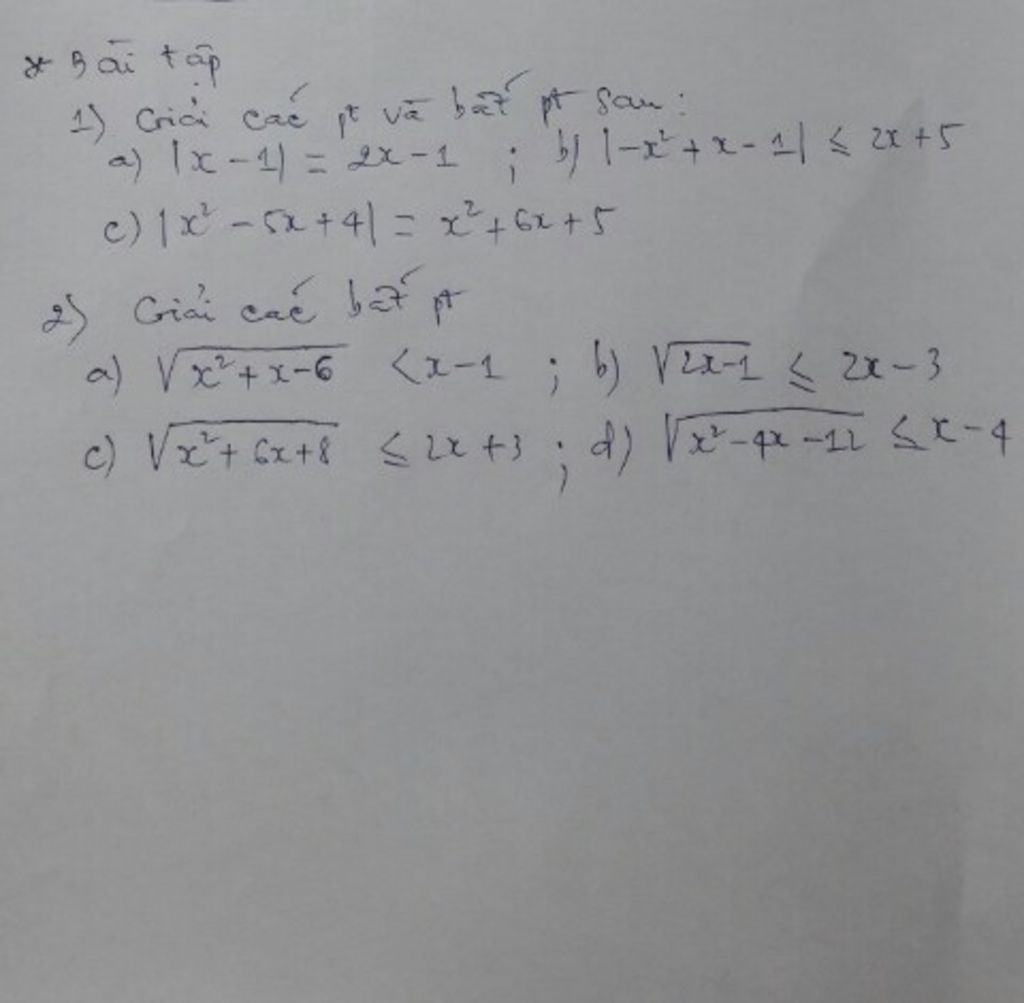 * Bài tập
1) Giải các pt và bất pt sau:
a) |x - 1| = 2x - 1 ; b) |-x² + x - 1| ≤ 2x + 5
c) |x² - 5x + 4| = x² + 6x + 5
2) Giải các bất pt
a) √(x² + x - 6) < x - 1 ; b) √(2x - 1) ≤ 2x - 3
c) √(x² + 6x + 8) ≤ 2x + 3 ; d) √(x² - 4x - 12) ≤ x - 4